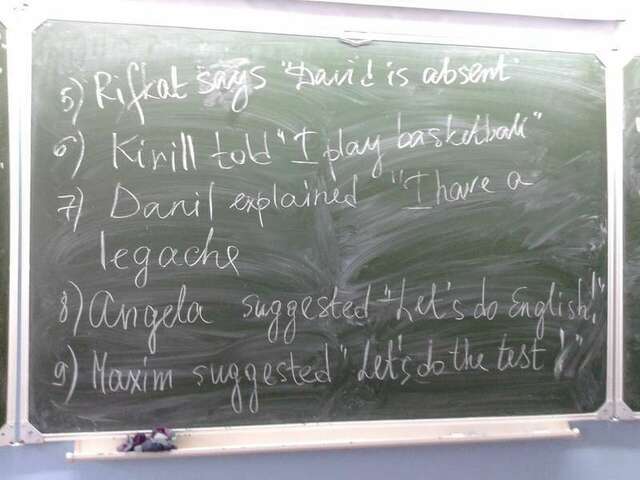 5) Rifkat says "David is absent"
6) Kirill told "I play basketball"
7) Danil explained "I have a
legache
8) Angela suggested "Let's do English!"
9) Maxim suggested "Let's do the test!"